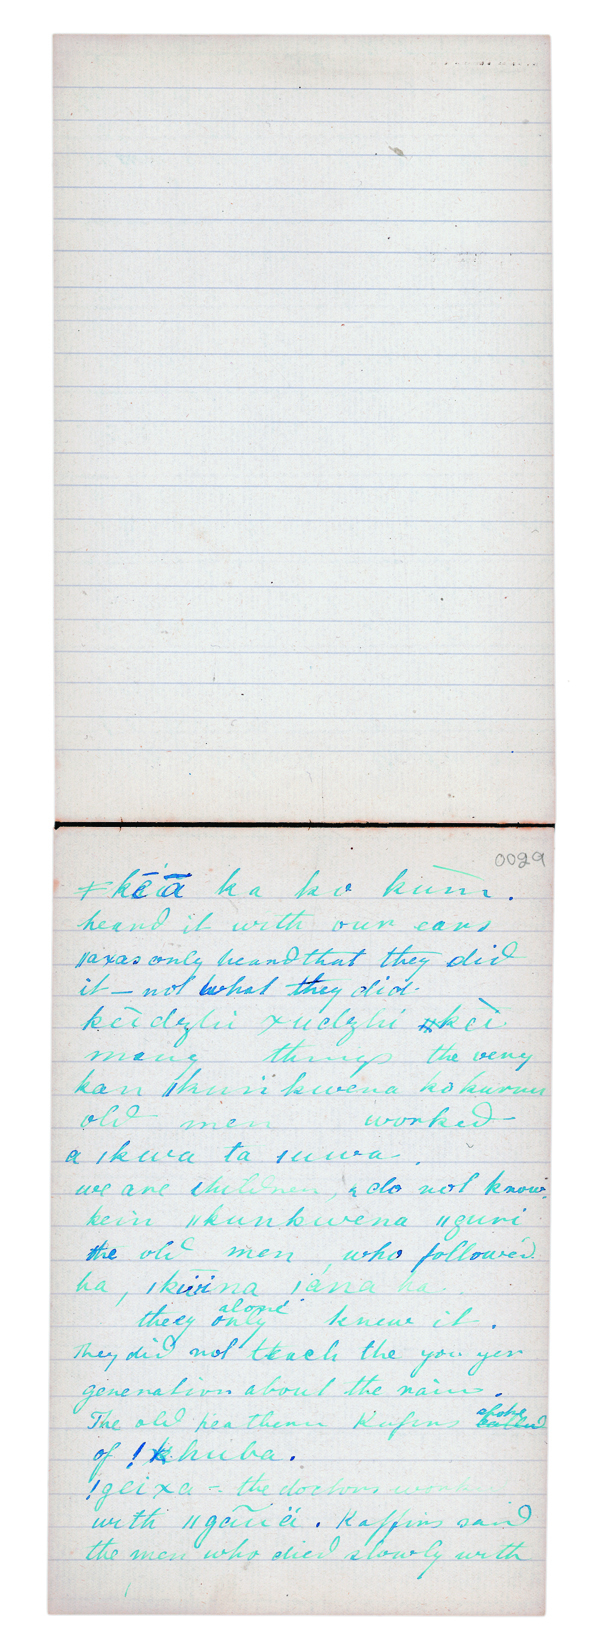 0029
ǂkēīā ka ko kūm.
heard it with our ears
ǁaxas only heard that they did
it — not what they did.
kēīdzhi xudzhi ǁkēī
many things the very
kan ǁkuṅ kwena ko kurus
old men worked
a ǀkwa ta ǀuwa.
we are children, & do not know.
kein ǁkunkwena ǁguri
the old men who followed
ha, ǀkūīna ǀána ha
they only alone knew it.
They did not teach the younger
generation about the rain.
The old heathen Kafirs spoke
of !khuba.
!geixa = the doctors work
with ǁgāūë. Kaffirs said
the men who died slowly with